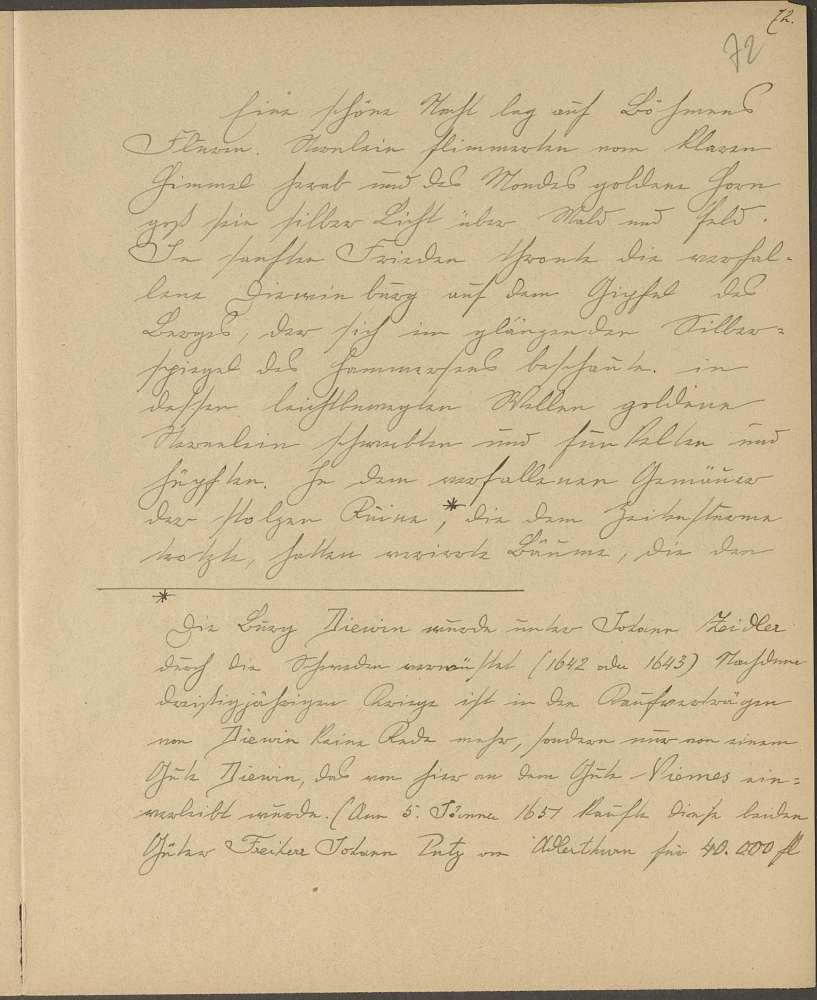 72.
72
Eine schöne Nacht lag auf Böhmens
Fluren. Sternlein flimmerten vom klaren
Himmel herab und des Mondes goldene Horn
goß sein silber Licht über Wald und Feld.
In sanften Frieden thronte die verfal-
lene Diewin burg auf dem Gipfel des
Berges, der sich im glänzenden Silber=
spiegel des Hammersees beschaute. in
dessen leichtbewegten Wellen goldene
Sternlein schwebten und funkelten und
hüpften. In dem verfallenen Gemäuer
der stolzen Ruine *, die dem Zeitensturme
trotzte, hatten verirrte Bäume, die den
*
Die Burg Diewin wurde unter Johann Zeidler
durch die Schweden verwüstet (1642 oder 1643) Nach dem
dreißigjährigen Kriege ist in den Kaufverträgen
von Diewin keine Rede mehr, sondern nur von einem
Gute Diewin, das von hier an dem Gute Niemes ein=
verleibt wurde. (Am 5. Jänner 1651 kaufte diese beiden
Güter Freiherr Johann Putz von Adlerthurn für 40.000 fl